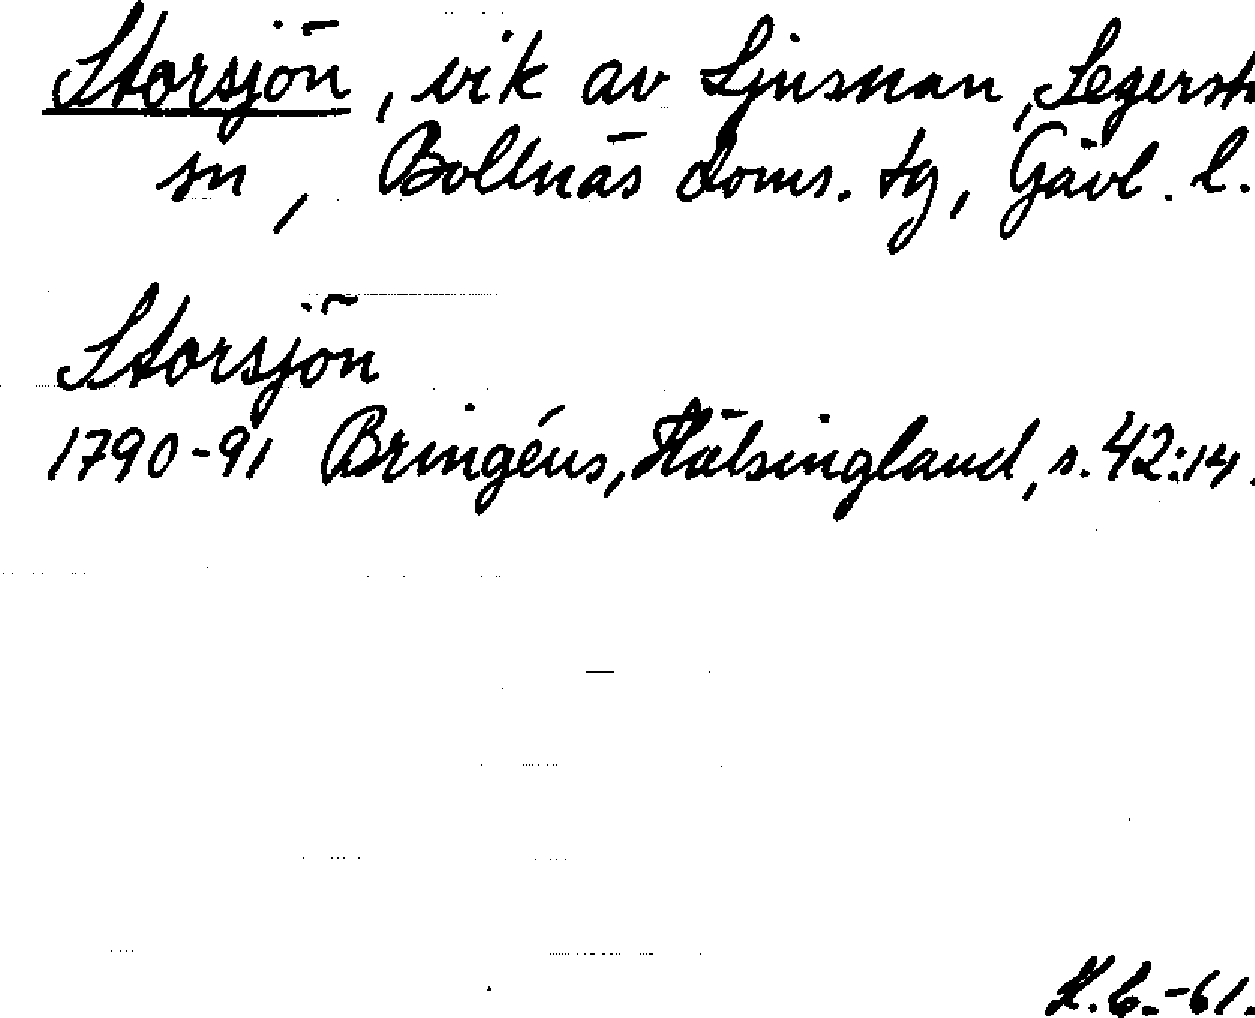 Storsjön, vik av Ljusnan, Segerst
sn, Bollnäs doms. tg, Gävl. l.
Storsjön
1790-91 Bringéus, Hälsingland, s. 42:14.
H.C.-61.